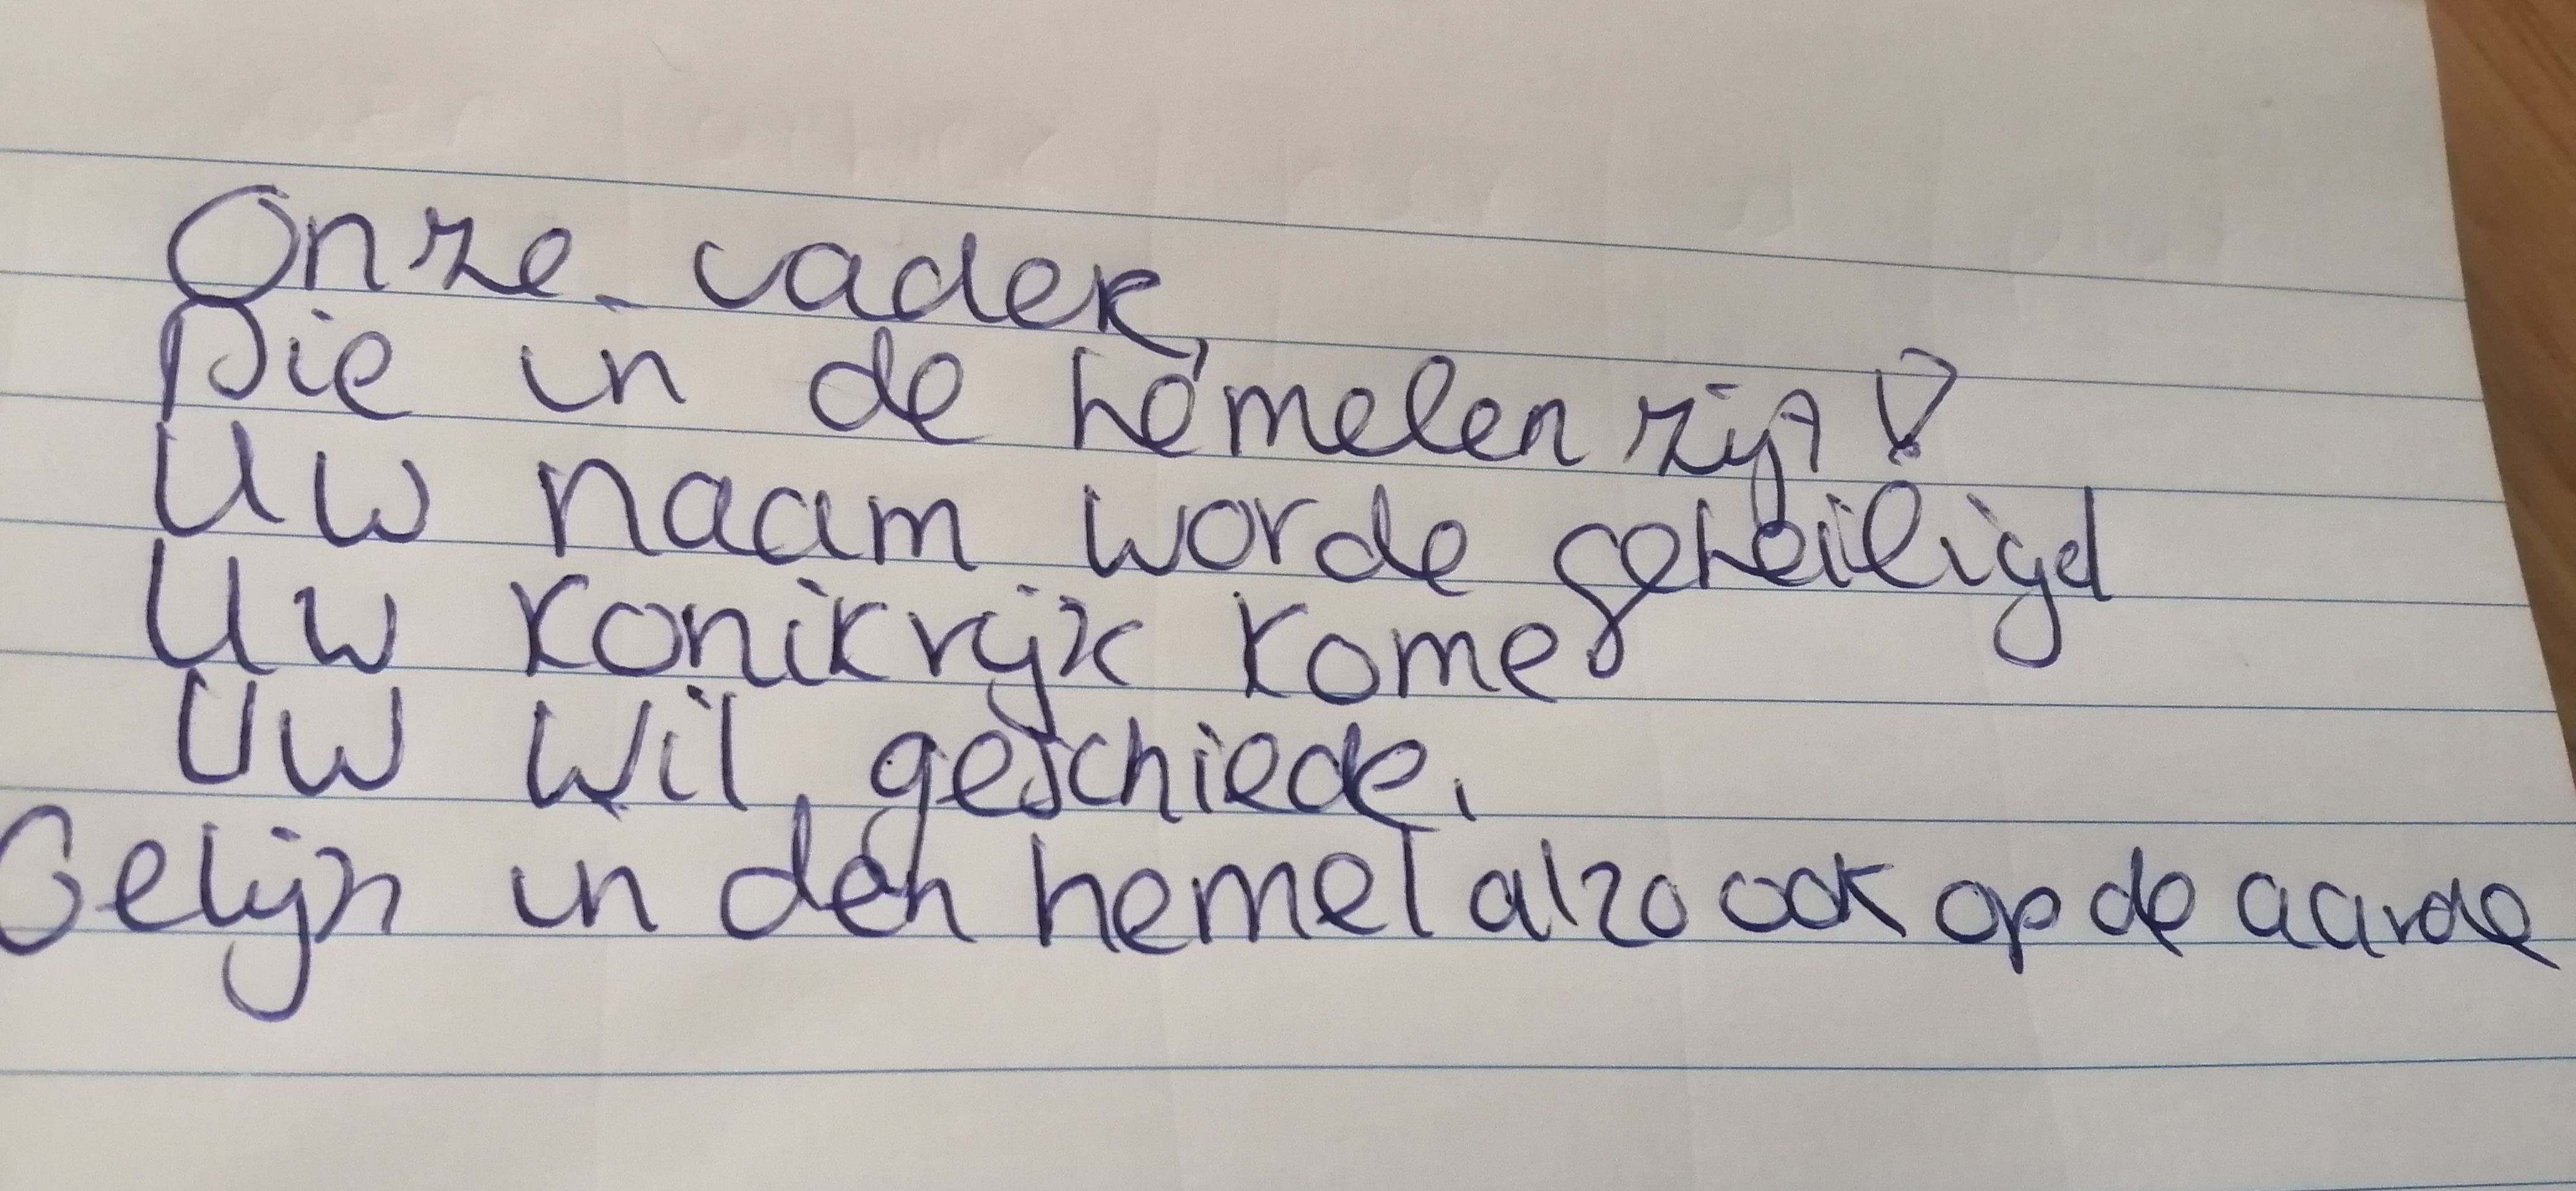 Onze vader,
Die in de hemelen zijn!
Uw naam worde geheiligd
Uw konikrijk kome
Uw wil geschiede,
Gelijk in den hemel alzo ook op de aarde